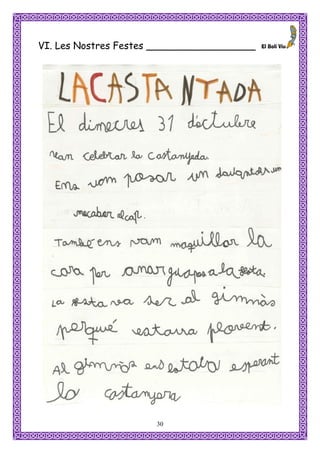 VI. Les Nostres Festes
El Bolí Viu
LA CASTANTADA
El dimecres 31 d'octubre
van celebrar la castanyada.
Ens vam posar un davantal
mocador al cap.
També ens vam maquillar la
cara per anar guapos a la festa.
La festa va ser al gimnàs
perqué estava plovent.
Al gimnàs ens estava esperant
la castanyera
30